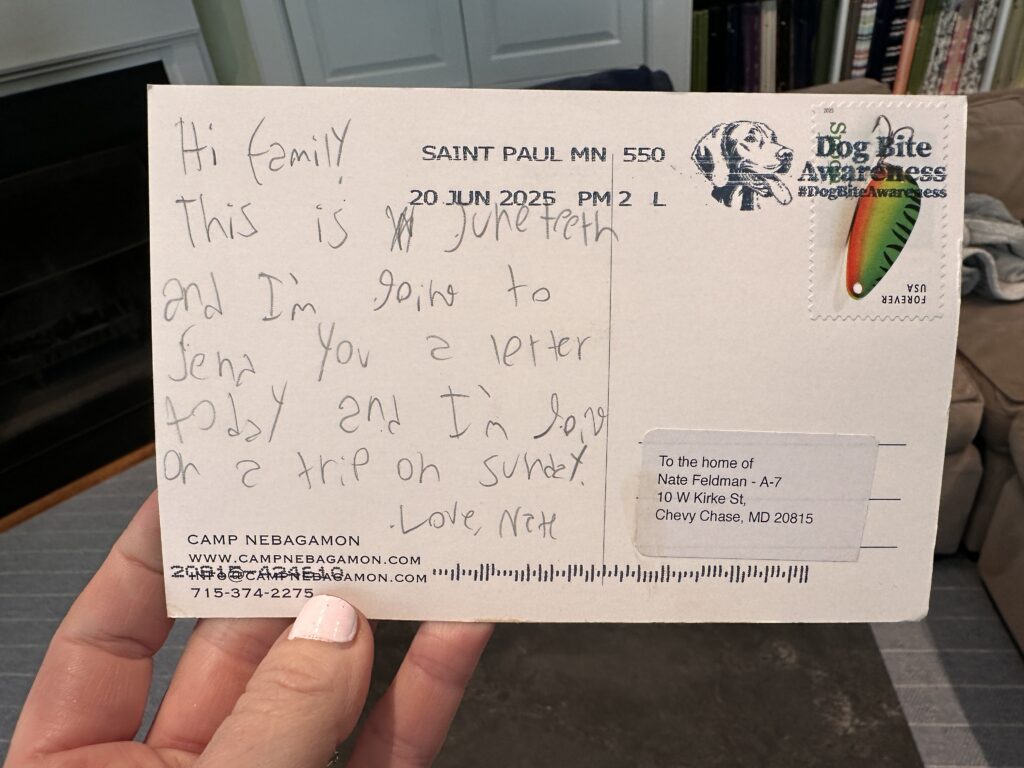 Hi family
This is Juneteeth
and I'm going to
send you a letter
today and I'm going
on a trip on sunday.
Love, Nate
CAMP NEBAGAMON
WWW.CAMPNEBAGAMON.COM
INFO@CAMPNEBAGAMON.COM
715-374-2275
SAINT PAUL MN 550
20 JUN 2025 PM 2 L
Dog Bite
Awareness
#DogBiteAwareness
2025
FOREVER
USA
To the home of
Nate Feldman - A-7
10 W Kirke St,
Chevy Chase, MD 20815